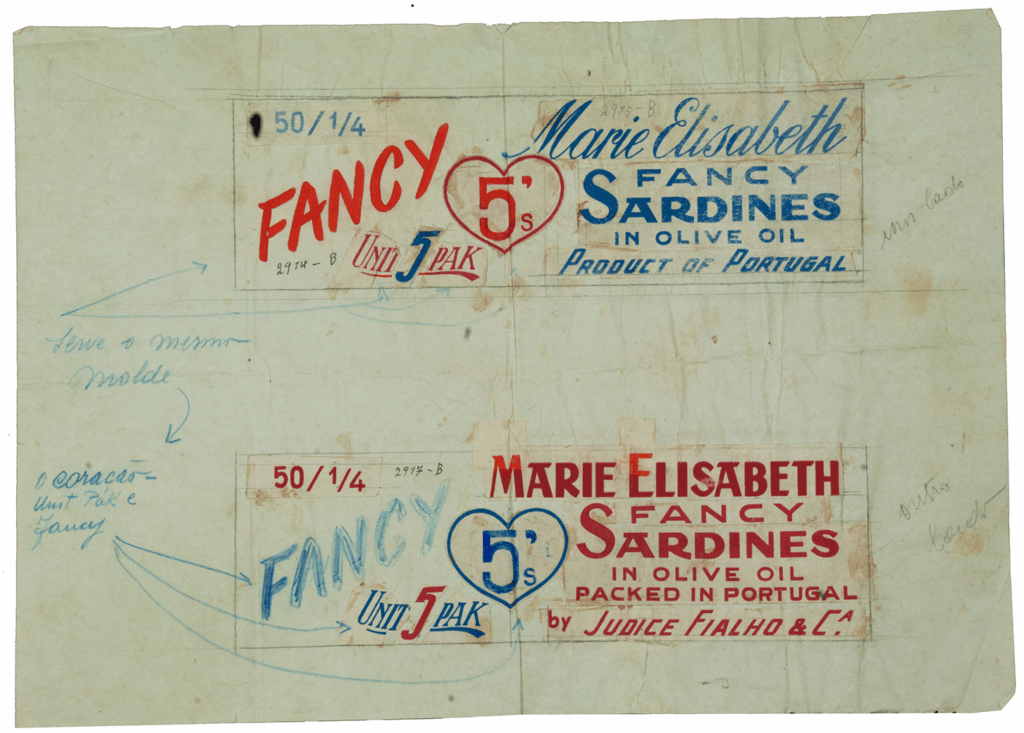 50/1/4
2975-B
Marie Elisabeth
FANCY
5's
FANCY
SARDINES
IN OLIVE OIL
PRODUCT OF PORTUGAL
2974-B
UNIT 5 PAK
um lado
Serve o mesmo
molde
O coração
Unit Pak e
fancy
50/1/4
2917-B
MARIE ELISABETH
FANCY
5's
FANCY
SARDINES
IN OLIVE OIL
PACKED IN PORTUGAL
UNIT 5 PAK
by JUDICE FIALHO & C.A
outro
lado